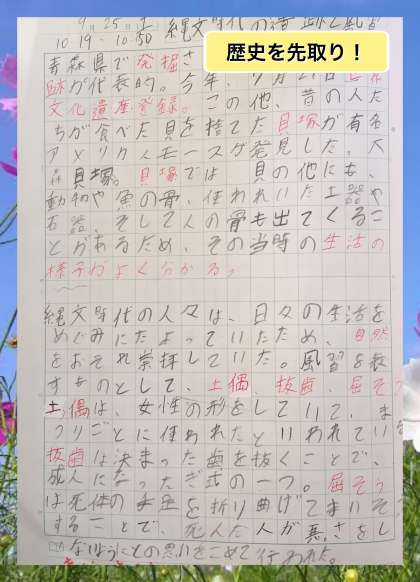 歴史を先取り！
9月25日土 縄文時代の遺跡と風習
10:19-10:50
青森県で発掘さ
跡が代表的。今年、7月27日世界
文化遺産登録。この他、昔の人た
ちが食べた貝を捨てた貝塚が有名。
アメリカ人モースが発見した、大
森貝塚。貝塚では貝の他にも、
動物や魚の骨、使われいた土器や
石器、そして人の骨も出てくるこ
とがあるため、その当時の生活の
様子がよく分かる。
縄文時代の人々は、日々の生活を
めぐみにたよっていたため、自然
をおそれ崇拝していた。風習を表
すものとして、土偶、抜歯、屈そう
土偶は、女性の形をしていて、ま
つりごとに使われたといわれてい
抜歯は決まった歯を抜くことで、
成人になったぎ式の一つ。屈そう
は死体の手足を折り曲げてまいそ
することで、死んだ人が悪さをし
ないようにとの思いをこめて行われた。